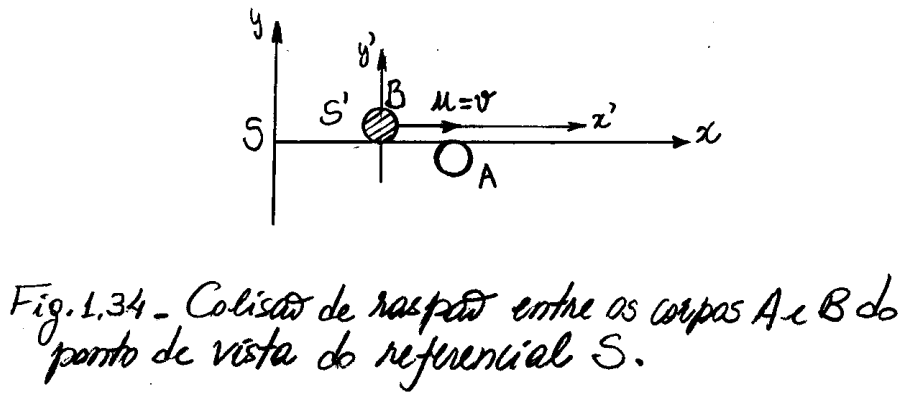 y
y'
B
S'
u=v
x'
S
x
A
Fig.1.34 - Colisão de raspão entre os corpos A e B do
ponto de vista do referencial S.